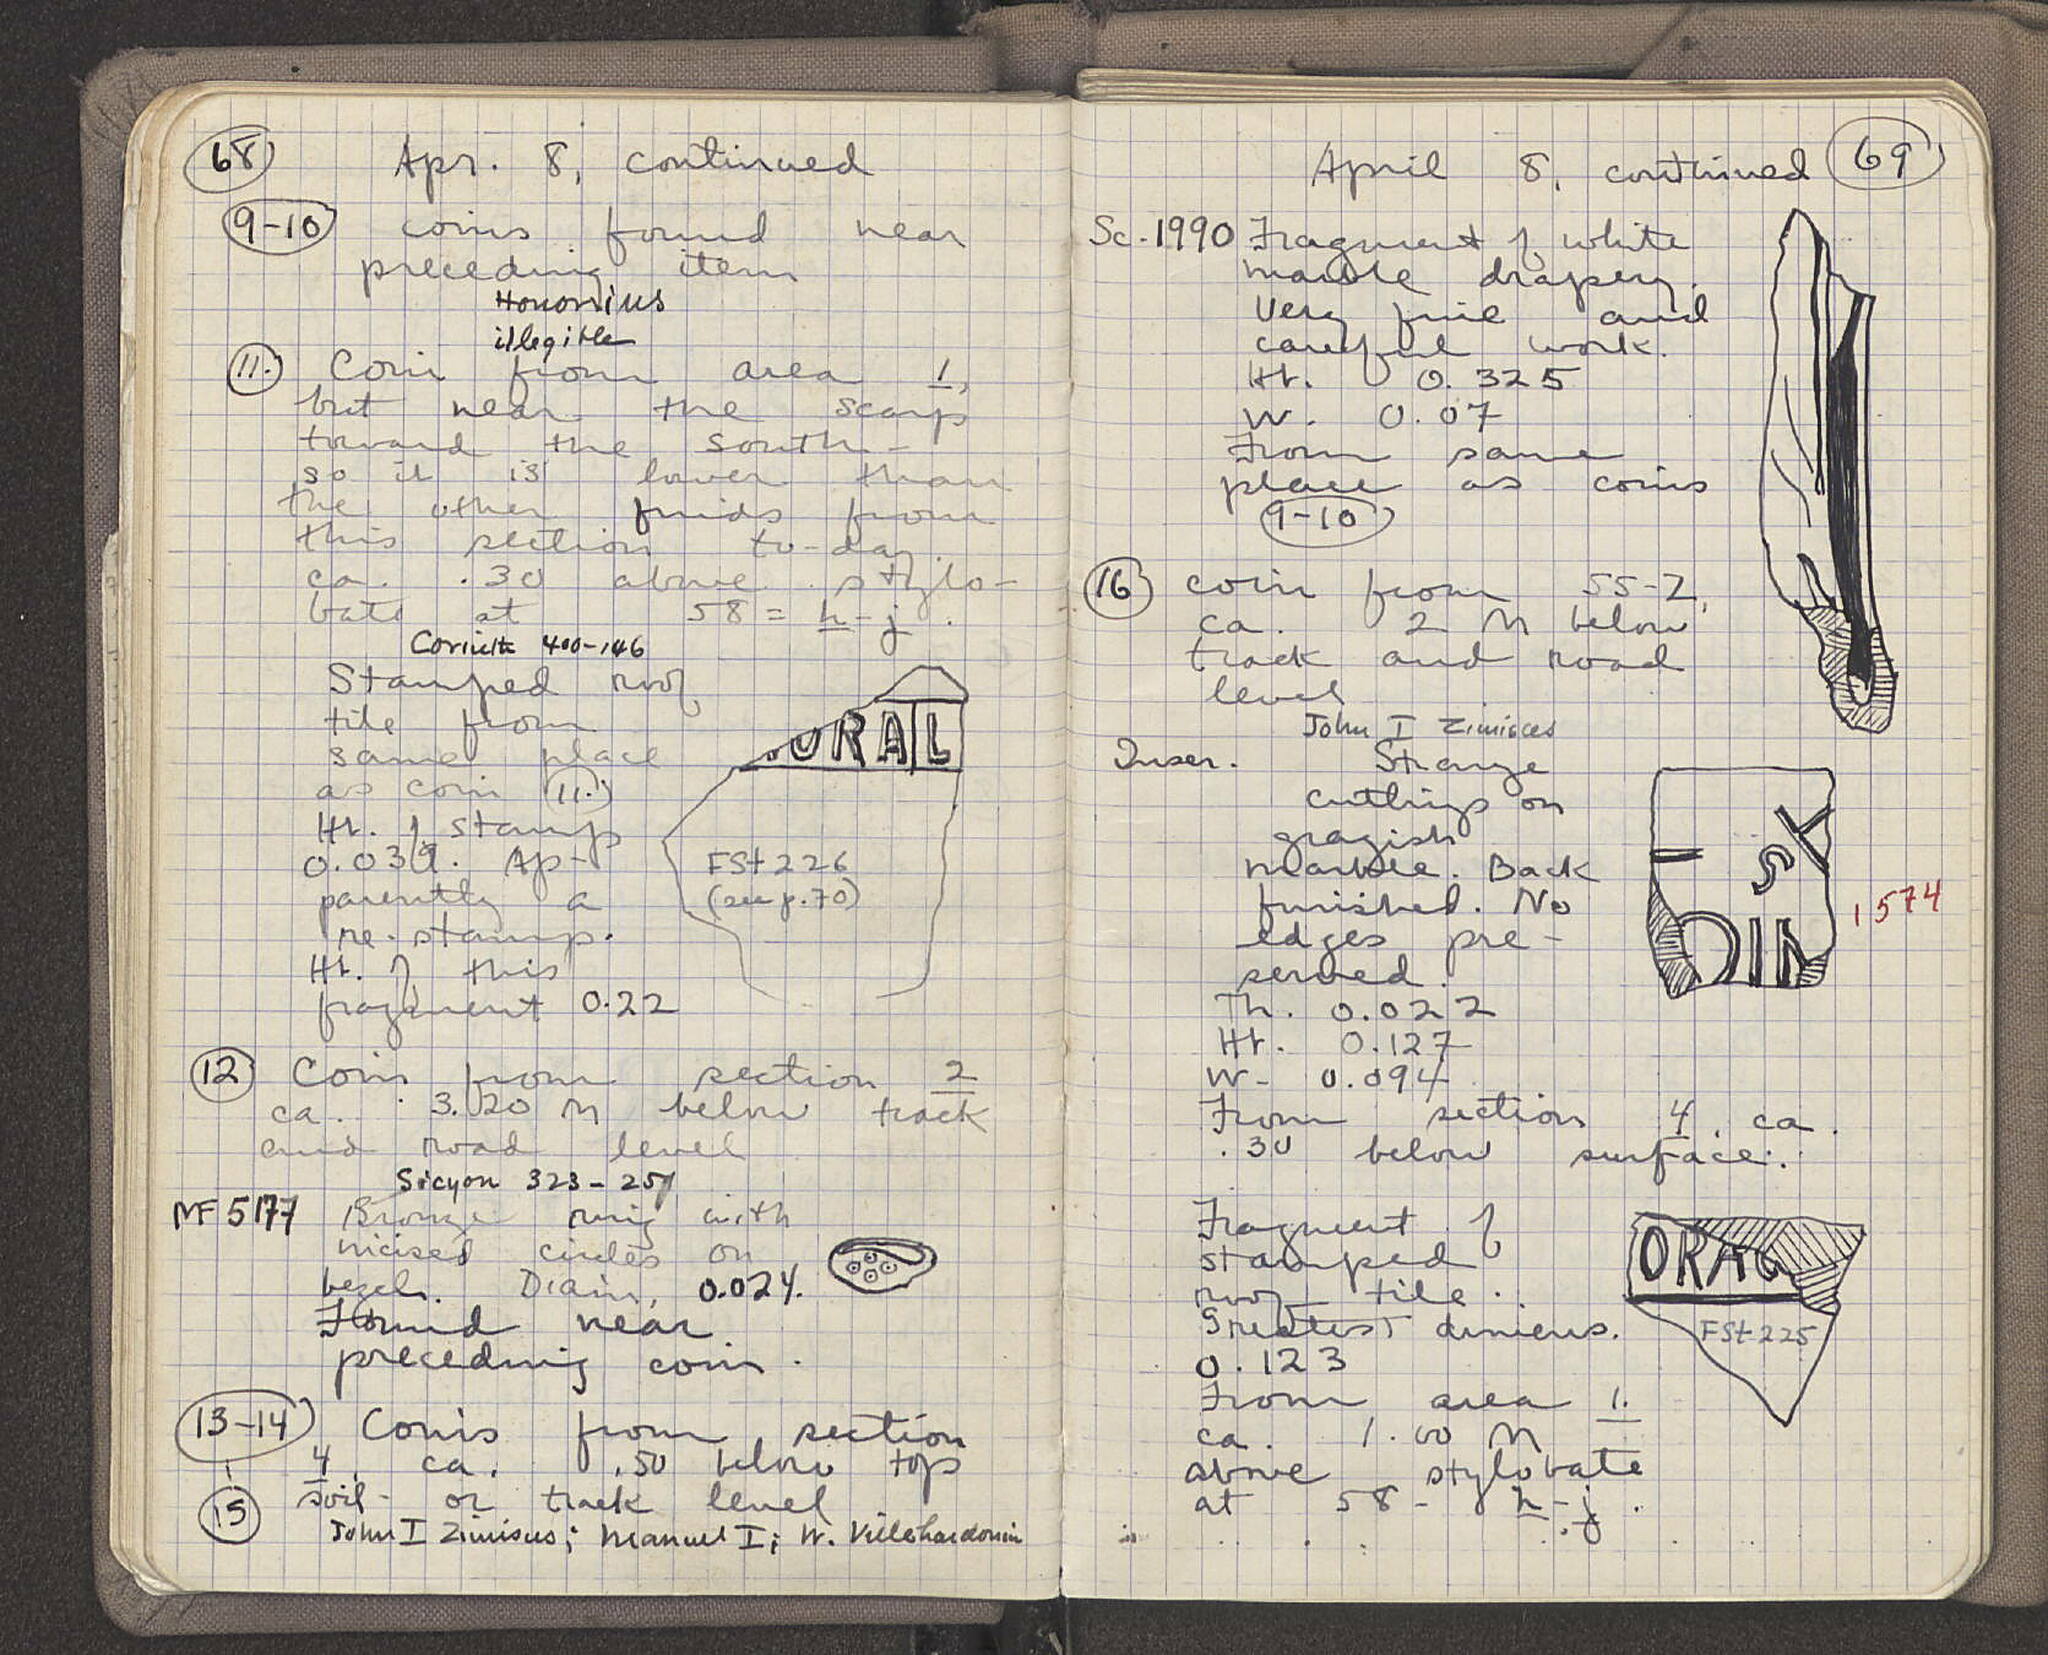 68
Apr. 8, continued
9-10 coins found near
preceding item
Honorius
illegible
11. Coin from area 1,
but near the scarp
toward the south -
so it is lower than
the other finds from
this section to-day.
ca. .30 above stylo-
bate at 58 = h-j.
Corinth 400-146
Stamped roof
tile from
same place
as coin 11.
Ht. of stamp
0.039. Ap-
parently a
re-stamp.
Ht. of this
fragment 0.22
ORAL
FSt 226
(see p. 70)
12 Coin from section 2
ca. 3.20 m below track
and road level
Sicyon 323-251
MF 5177 Bronze ring with
incised circles on
bezel. Diam. 0.024.
Found near
preceding coin.
13-14 Coins from section
4, ca. .50 below top
15 soil - or track level
John I Zimisces; Manuel I; W. Villehardouin
April 8, continued 69
Sc. 1990 Fragment of white
marble drapery.
Very fine and
careful work.
Ht. 0.325
W. 0.07
From same
place as coins
9-10
16 coin from 55-2,
ca. 2 m below
track and road
level
John I Zimisces
Inscr. Strange
cuttings on
grayish
marble. Back
finished. No
edges pre-
served.
Th. 0.022
Ht. 0.127
W- 0.094
From section 4, ca.
.30 below surface.
1574
Fragment of
stamped
roof tile.
Greatest dimens.
0.123
From area 1.
ca. 1.00 m
above stylobate
at 58 - h-j.
ORAG
FSt 225